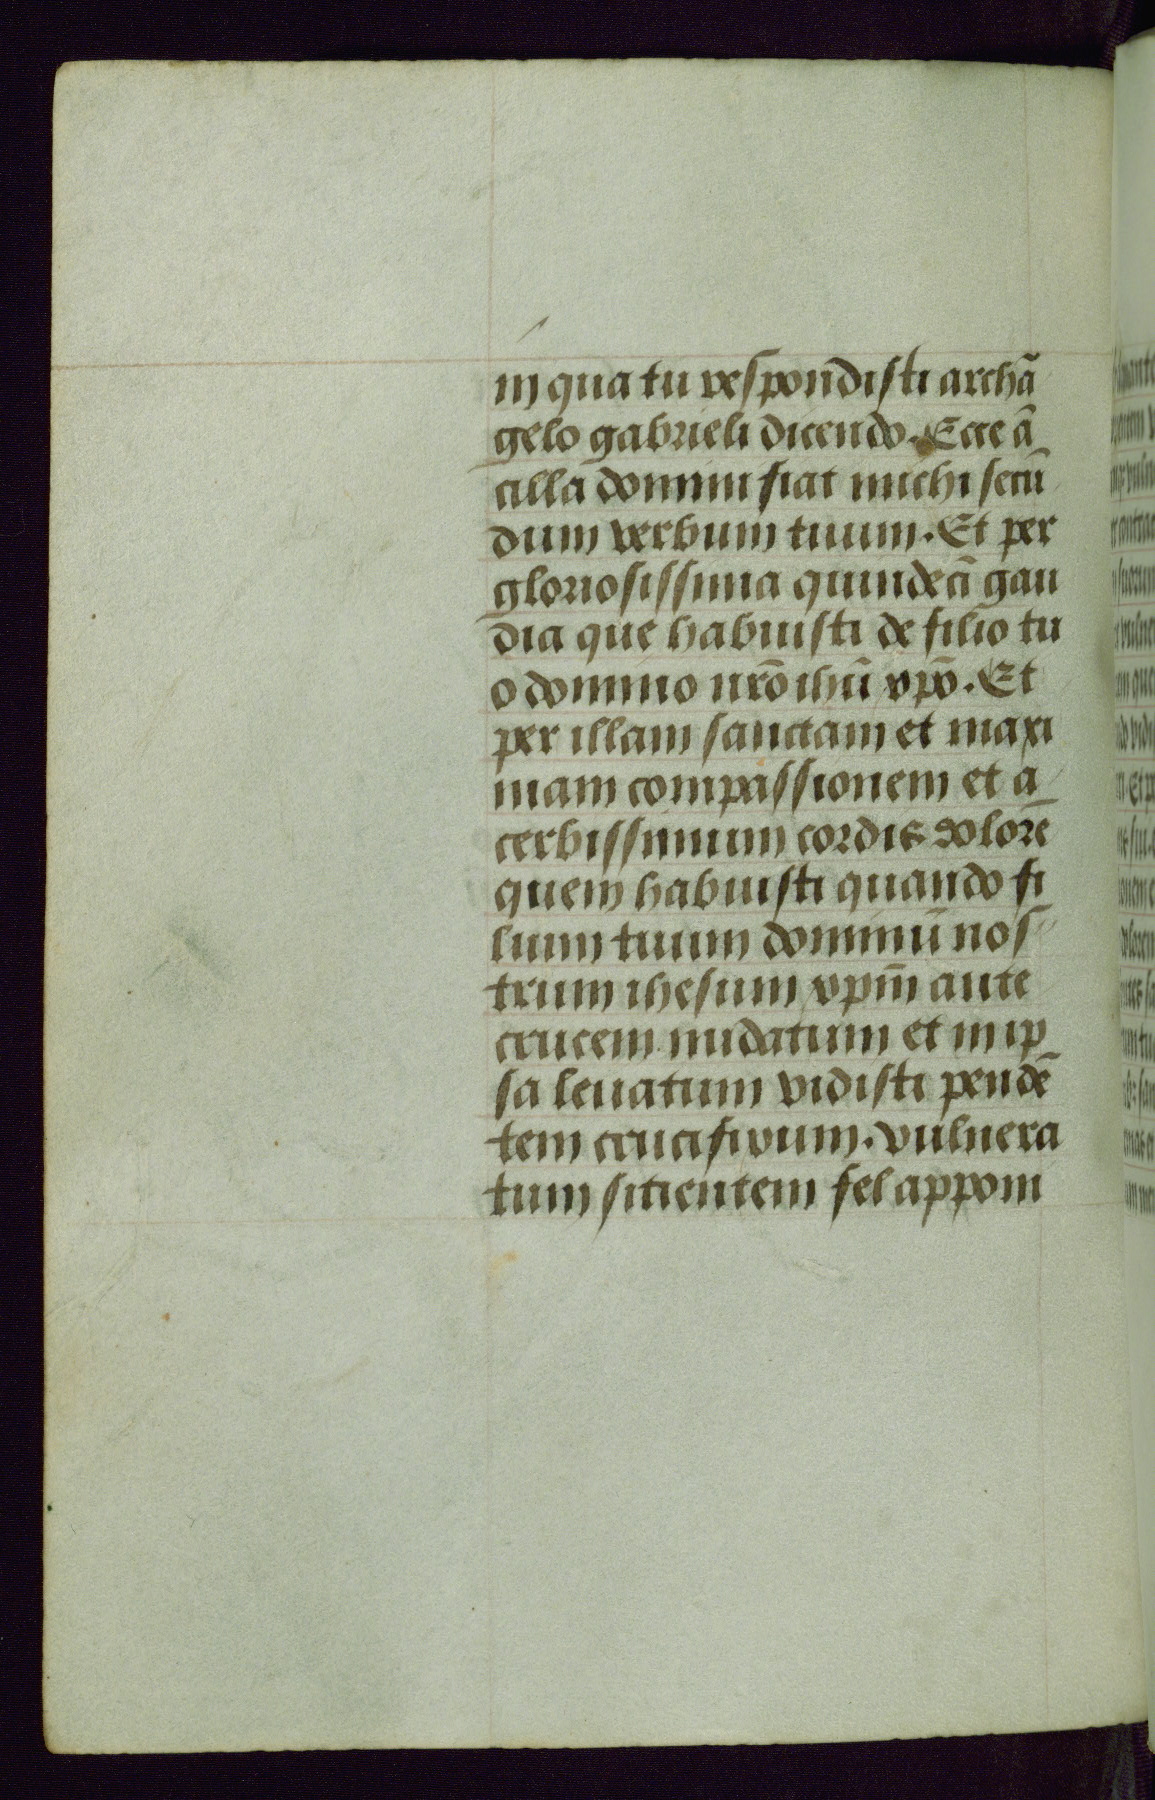 in qua tu respondisti archã
gelo gabrieli dicendo. Ecce ã
cilla domini fiat michi secũ
dum verbum tuum. Et per
gloriosissima quindecĩ gau
dia que habuisti de filio tu
o domino nr̃o ihũ xpõ. Et
per illam sanctam et maxi
mam compassionem et a
cerbissimum cordis dolorẽ
quem habuisti quando fi
lium tuum dominũ nos
trum ihesum xpm̃ ante
crucem nudatum et in ip
sa leuatum vidisti pendẽ
tem crucifixum. vulnera
tum sitientem fel apponi